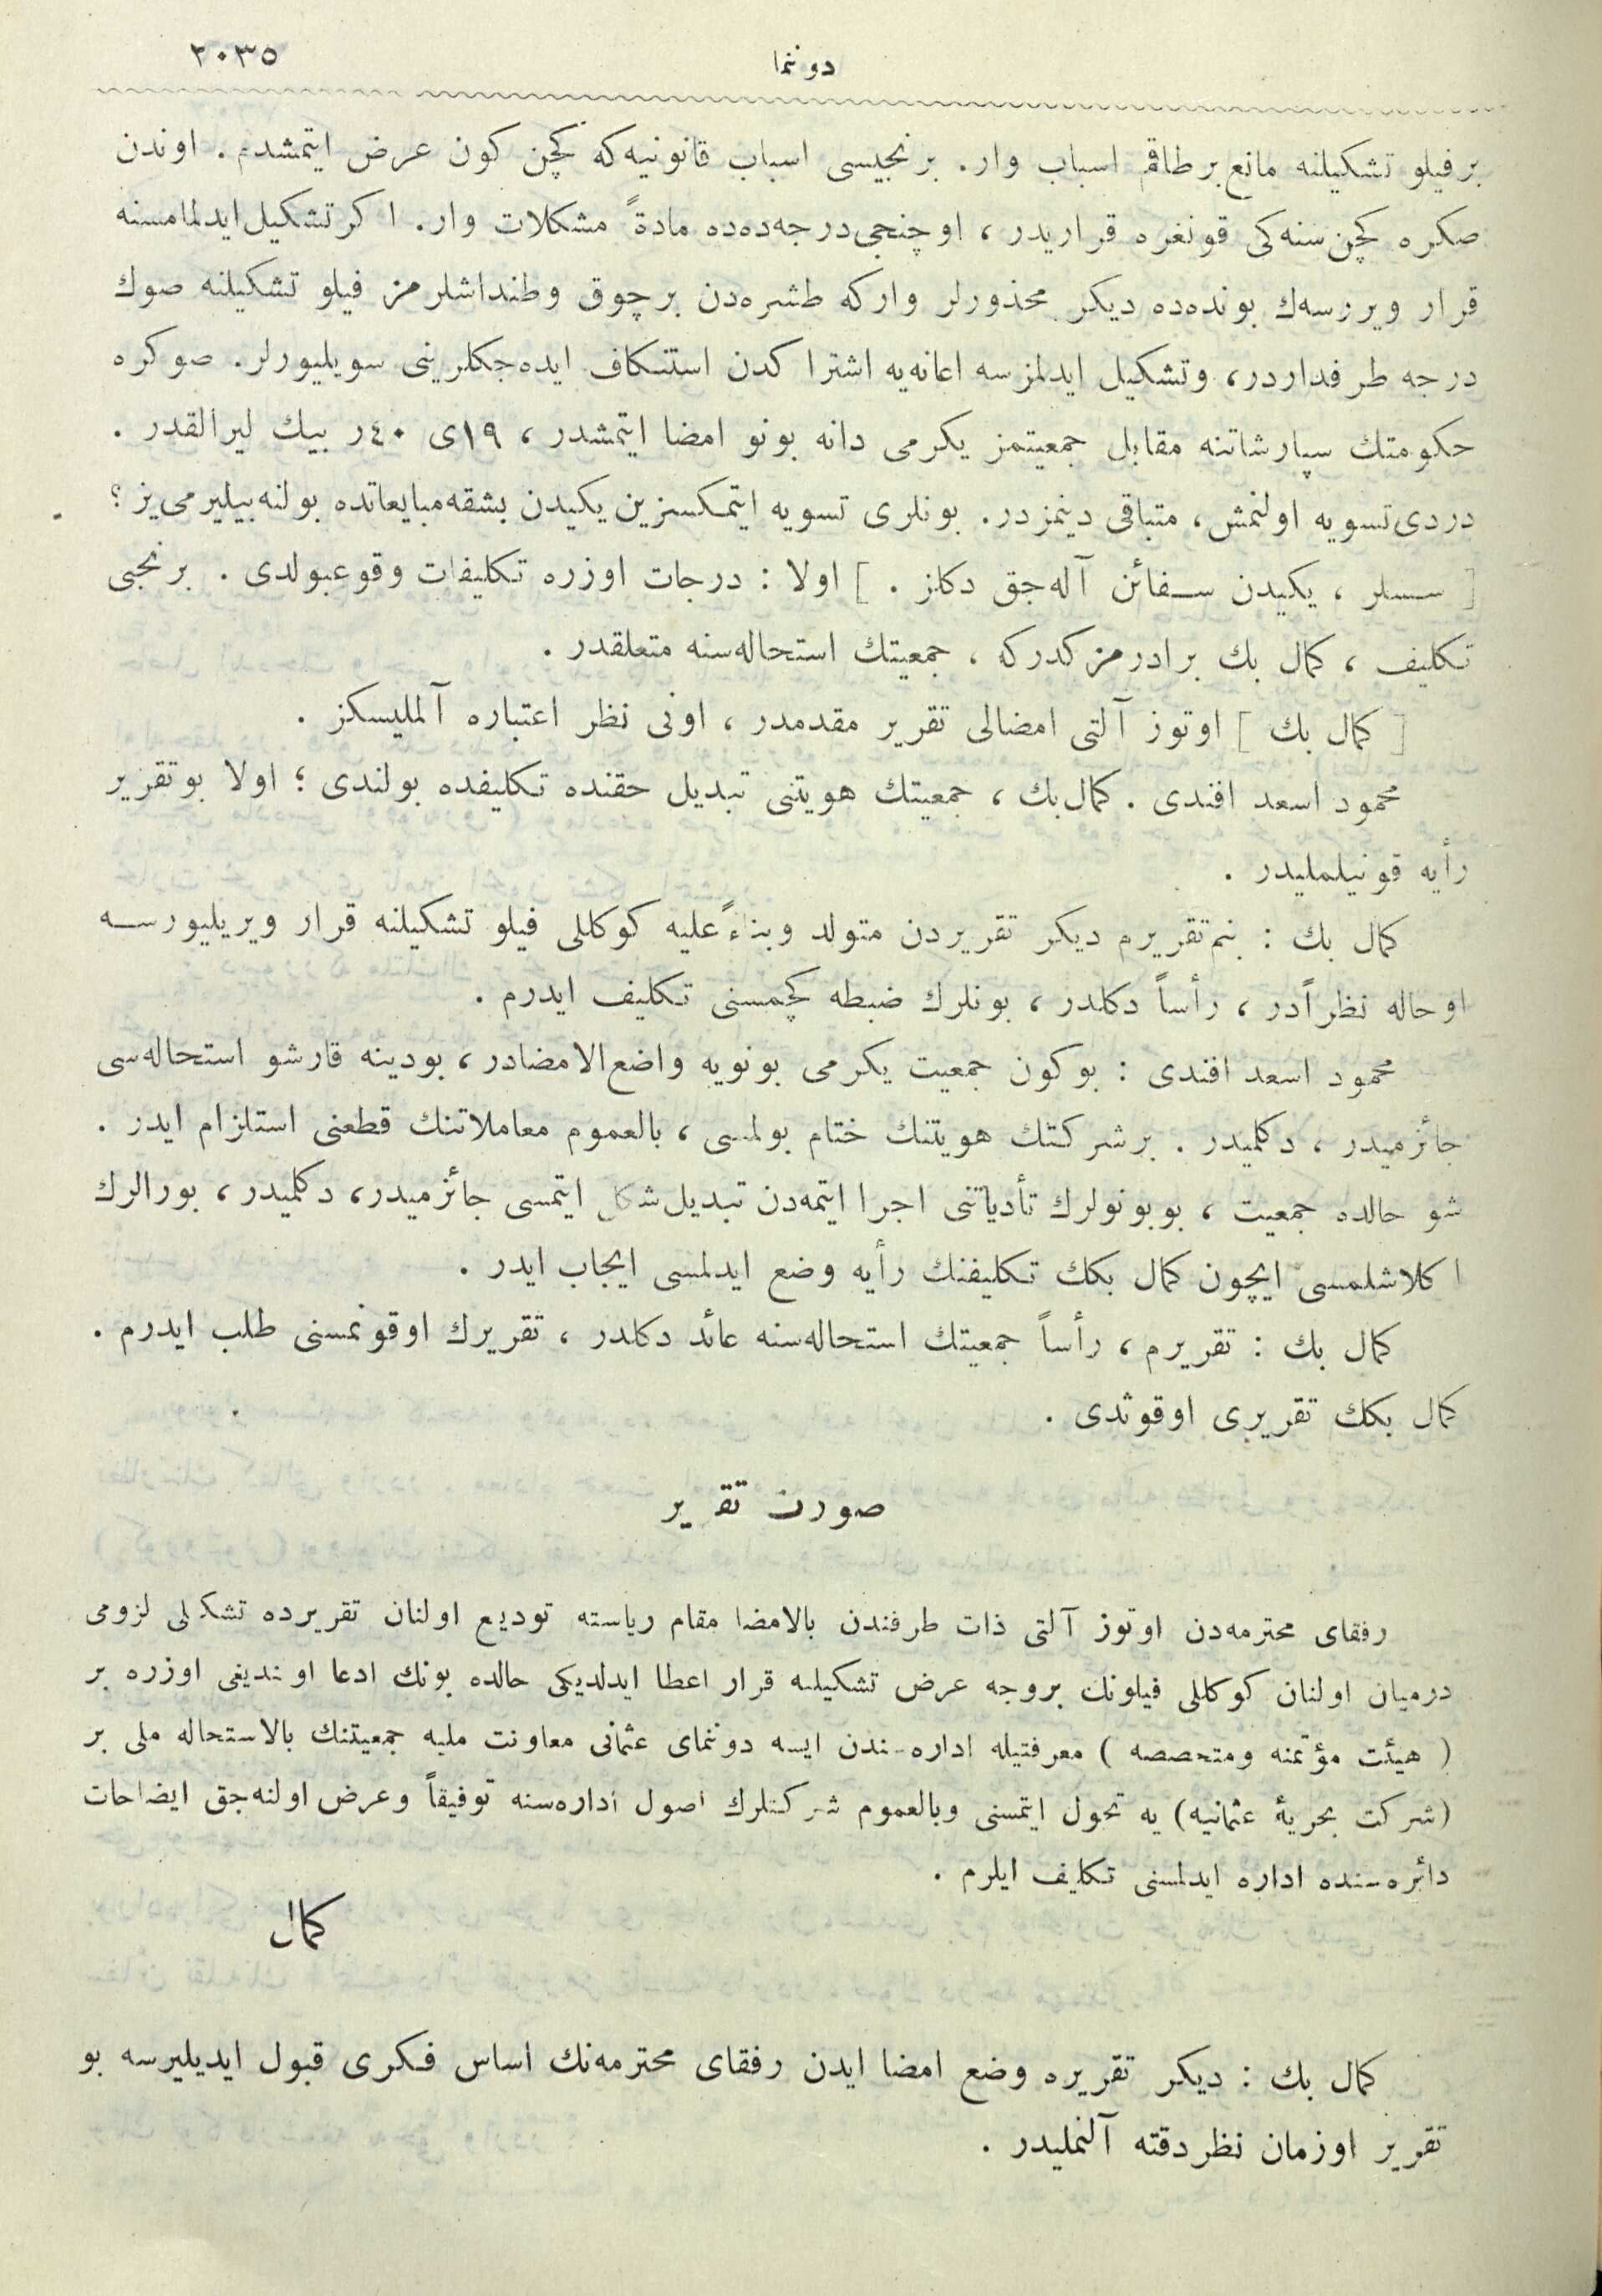 دونما
٢٠٣٥
برفيلو تشكيلنه مانع برطاقم اسباب وار. برنجيسى اسباب قانونيه‌كه كچن كون عرض ايتمشدم. اوندن
صكره كچن سنه‌كى قونغره قراريدر، اوچنجى درجه‌ده‌ده مادةً مشكلات وار. اكر تشكيل ايدلمامسنه
قرار ويررسه‌ك بونده‌ده ديكر محذورلر واركه طشره‌دن برچوق وطنداشلرمز فيلو تشكيلنه صوك
درجه طرفداردر، وتشكيل ايدلمزسه اعانه‌يه اشتراكدن استنكاف ايده‌جكلرينى سويليورلر. صوكره
حكومتك سپارشاتنه مقابل جمعيتمز يكرمى دانه بونو امضا ايتمشدر، ١٩ى ٤٠ر بيك ليرالقدر.
دردى تسويه اولنمش، متباقى دينمزدر. بونلرى تسويه ايتمكسزين يكيدن بشقه مبايعاتده بولنه‌بيليرمى‌يز؟
[ سسلر، يكيدن سفائن آله‌جق دكلز. ] اولا: درجات اوزره تكليفات وقوعبولدى. برنجى
تكليف، كمال بك برادرمزكدركه، جمعيتك استحاله‌سنه متعلقدر.
[ كمال بك ] اوتوز آلتى امضالى تقرير مقدمدر، اونى نظر اعتباره آلمليسكز.
محمود اسعد افندى. كمال بك، جمعيتك هويتنى تبديل حقنده تكليفده بولندى؛ اولا بو تقرير
رأيه قونيلمليدر.
كمال بك: بنم تقريرم ديكر تقريردن متولد وبناءً عليه كوكللى فيلو تشكيلنه قرار ويريليورسه
اوحاله نظراًدر، رأساً دكلدر، بونلرك ضبطه كچمسنى تكليف ايدرم.
محمود اسعد افندى: بوكون جمعيت يكرمى بونويه واضع الامضادر، بودينه قارشو استحاله‌سى
جائزميدر، دكلميدر. برشركتك هويتنك ختام بولمسى، بالعموم معاملاتنك قطعنى استلزام ايدر.
شو حالده جمعيت، بوبونولرك تأدياتنى اجرا ايتمه‌دن تبديل شكل ايتمسى جائزميدر، دكلميدر، بورالرك
اكلاشلمسى ايچون كمال بكك تكليفنك رأيه وضع ايدلمسى ايجاب ايدر.
كمال بك: تقريرم، رأساً جمعيتك استحاله‌سنه عائد دكلدر، تقريرك اوقونمسنى طلب ايدرم.
كمال بكك تقريرى اوقوندى.
صورت تقرير
رفقاى محترمه‌دن اوتوز آلتى ذات طرفندن بالامضا مقام رياسته توديع اولنان تقريرده تشكلى لزومى
درميان اولنان كوكللى فيلونك بروجه عرض تشكيلنه قرار اعطا ايدلديكى حالده بونك ادعا اولنديغى اوزره بر
( هيئت مؤتمنه ومتخصصه ) معرفتيله اداره‌سندن ايسه دونماى عثمانى معاونت مليه جمعيتنك بالاستحاله ملى بر
(شركت بحريۀ عثمانيه) يه تحول ايتمسنى وبالعموم شركتلرك اصول اداره‌سنه توفيقاً وعرض اولنه‌جق ايضاحات
دائره‌سنده اداره ايدلمسنى تكليف ايلرم.
كمال
كمال بك: ديكر تقريره وضع امضا ايدن رفقاى محترمه‌نك اساس فكرى قبول ايديليرسه بو
تقرير اوزمان نظر دقته آلنمليدر.